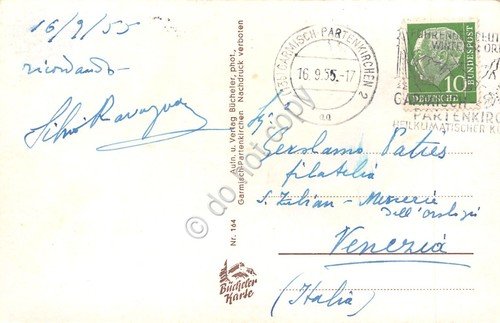 16/9/55
ricordando
Silvio
Aufn. u. Verlag Bücheler, phot.,
Garmisch-Partenkirchen Nachdruck verboten
Nr. 164
Bücheler
Karte
GARMISCH-PARTENKIRCHEN 2
16.9.55.-17
FÜHRENDER DEUT
WINTER
GARMISCH
PARTENKIRC
HEILKLIMATISCHER K
10
DEUTSCHE
BUNDESPOST
Gerolamo Patres
filatelia
S. Zulian - Mercerie
dell'orologio
Venezia
(Italia)
do not copy